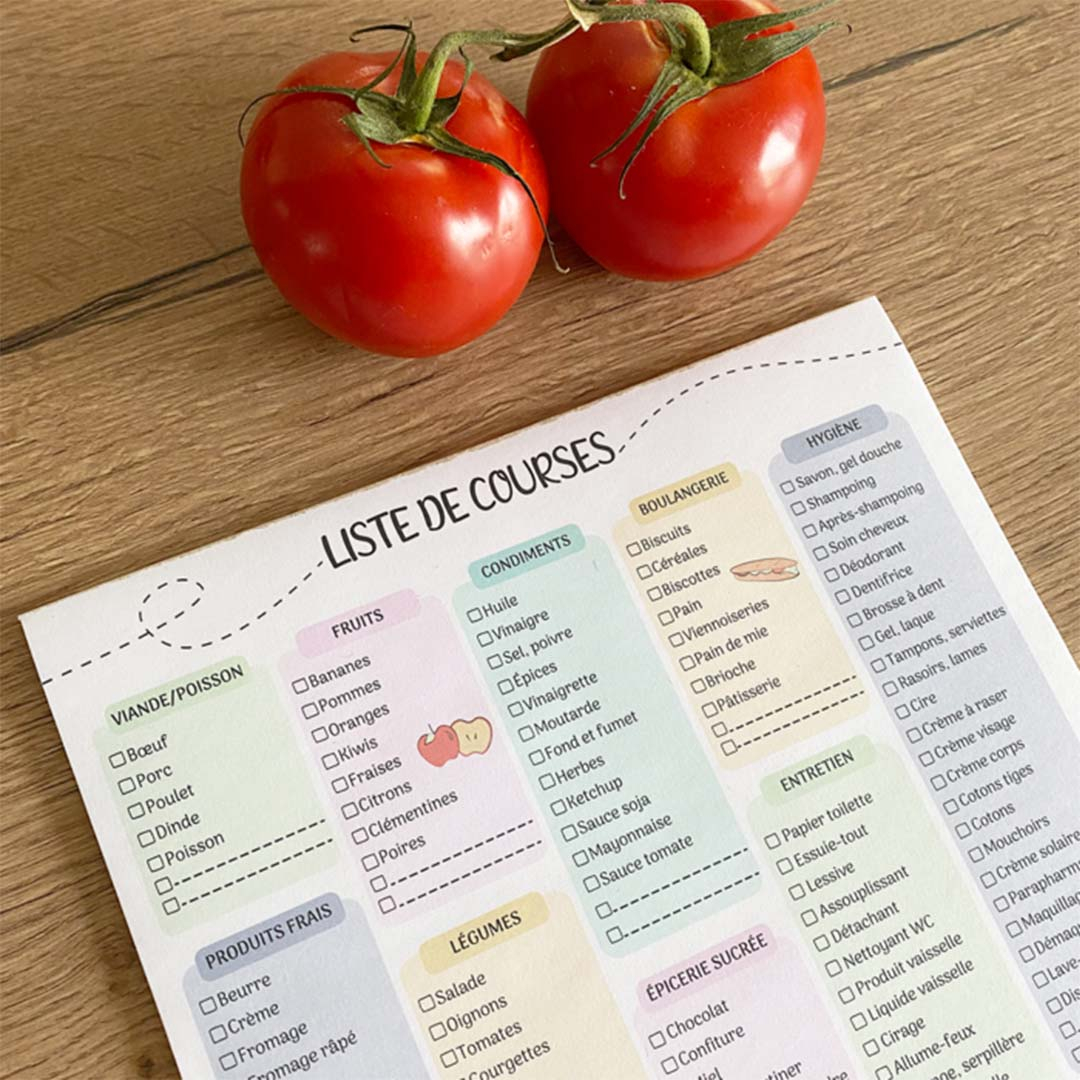 LISTE DE COURSES
VIANDE/POISSON
Bœuf
Porc
Poulet
Dinde
Poisson
FRUITS
Bananes
Pommes
Oranges
Kiwis
Fraises
Citrons
Clémentines
Poires
CONDIMENTS
Huile
Vinaigre
Sel, poivre
Épices
Vinaigrette
Moutarde
Fond et fumet
Herbes
Ketchup
Sauce soja
Mayonnaise
Sauce tomate
BOULANGERIE
Biscuits
Céréales
Biscottes
Pain
Viennoiseries
Pain de mie
Brioche
Pâtisserie
HYGIÈNE
Savon, gel douche
Shampoing
Après-shampoing
Soin cheveux
Déodorant
Dentifrice
Brosse à dent
Gel, laque
Tampons, serviettes
Rasoirs, lames
Cire
Crème à raser
Crème visage
Crème corps
Cotons tiges
Cotons
Mouchoirs
Crème solaire
Parapharm
Maquillag
Démaq
Lave-
Dis
PRODUITS FRAIS
Beurre
Crème
Fromage
Fromage râpé
LÉGUMES
Salade
Oignons
Tomates
Courgettes
ÉPICERIE SUCRÉE
Chocolat
Confiture
ENTRETIEN
Papier toilette
Essuie-tout
Lessive
Assouplissant
Détachant
Nettoyant WC
Produit vaisselle
Liquide vaisselle
Cirage
Allume-feux
serpillère